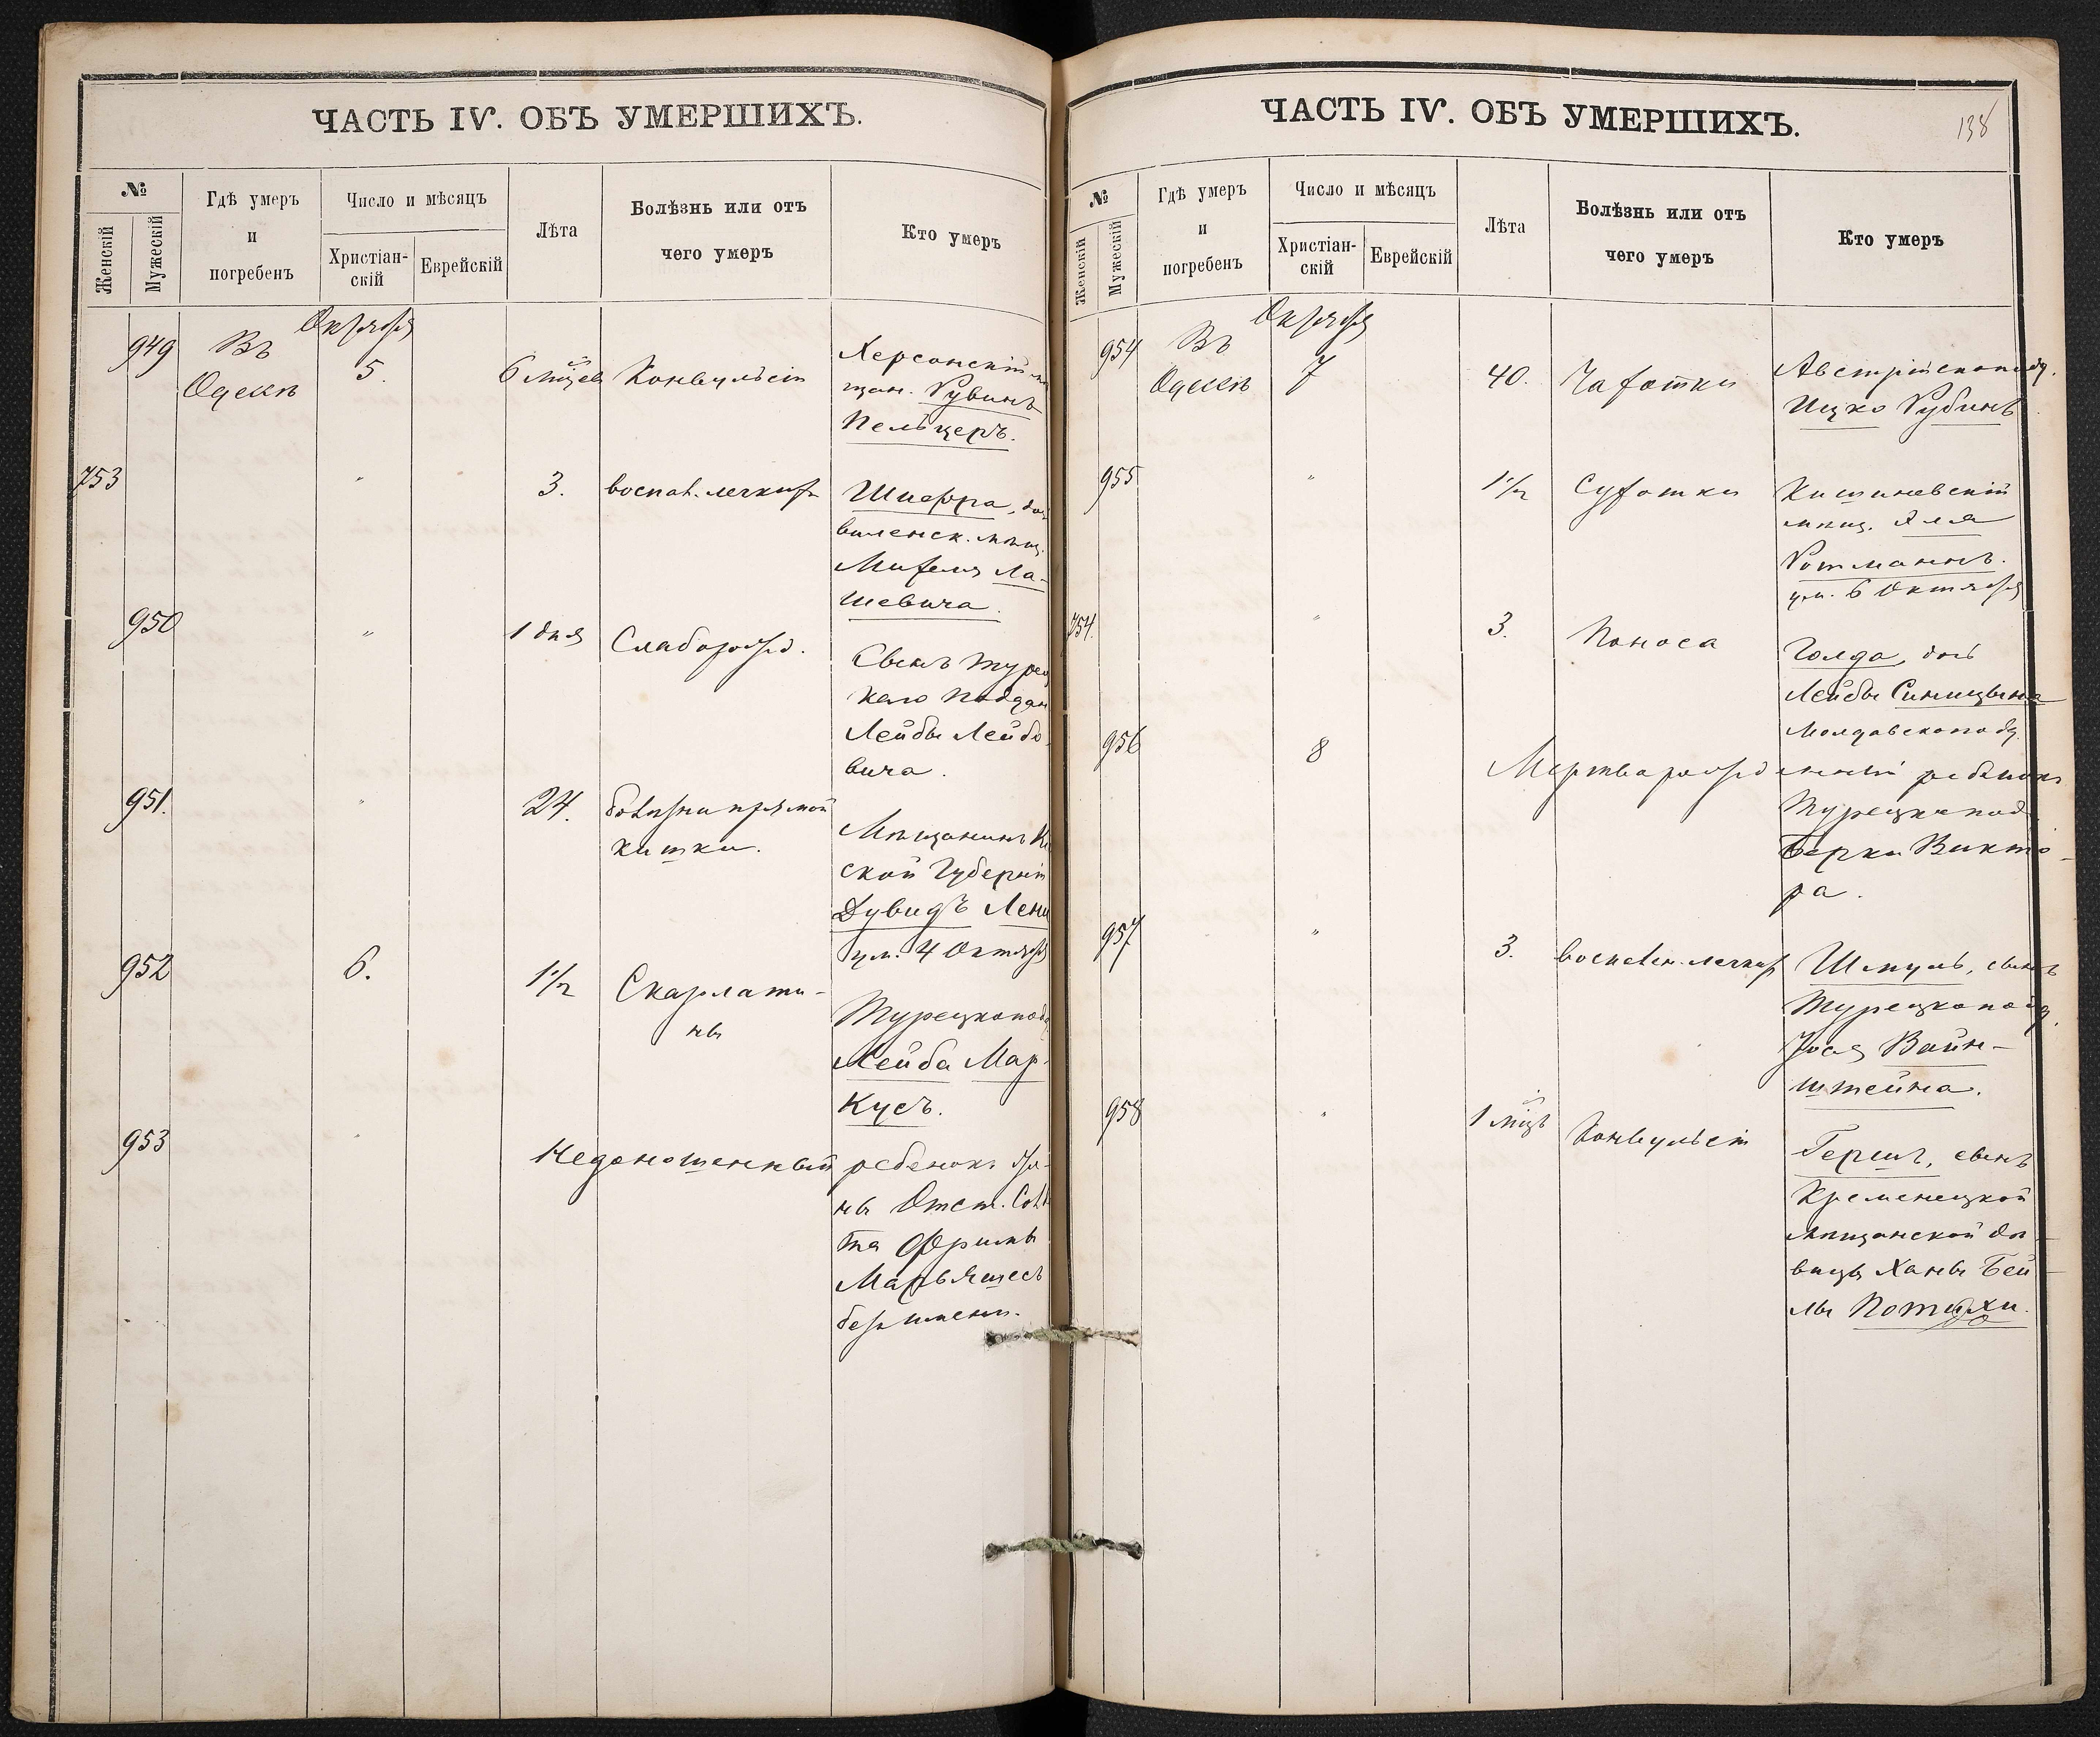 ЧАСТЬ IV. ОБЪ УМЕРШИХЪ.
№
Женскій
Мужескій
Гдѣ умеръ
и
погребенъ
Число и мѣсяцъ
Христіан-
скій
Еврейскій
Лѣта
Болѣзнь или отъ
чего умеръ
Кто умеръ
Октября
949 Въ
Одессѣ
5.
6 мѣсцев
Конвульсіи
Херсонскій мѣ
щан. Рувинъ
Пельцеръ.
753
"
3.
воспал. легкихъ
Шифра, доч
виленск. мѣщ.
Ла-
шевича.
950
"
1 дня
Слаборожд.
Сынъ турец
каго поддан
Лейбы Лейбо
вича.
951.
"
24.
болѣзни прямой
кишки.
Мѣщанинъ
ской Губерніи
Дувидъ
ум. 4 Октября
952
6.
1 1/2
Скарлати-
ны
Турецкоподд
Лейба Мар-
кусъ.
953
"
Недоношенный ребенокъ же-
ны Отст. Солд
та Фримы
безъ имени.
ЧАСТЬ IV. ОБЪ УМЕРШИХЪ.
138
№
Женскій
Мужескій
Гдѣ умеръ
и
погребенъ
Число и мѣсяцъ
Христіан-
скій
Еврейскій
Лѣта
Болѣзнь или отъ
чего умеръ
Кто умеръ
Октября
954 Въ
Одессѣ
7
40.
Чахотки
Австрійскоподд.
Ицко Рубинъ
955
"
1 1/2
Сухотки
Кишиневскій
мѣщ. Эля
Ротманнъ.
ум. 6 Октября
754.
"
3.
Поноса
Голда, дочь
Лейбы Синицына
Молдавскоподд.
956
8
Мертворожденный ребенокъ
Турецкопод
Берки Викто-
ра.
957
"
3.
воспален. легких
Шмуль, сынъ
Турецкоподд.
Іося Вайн-
штейна.
958
"
1 мѣцъ
Конвульсіи
Гершъ, сынъ
Кременецкой
мѣщанской дѣ-
вицы Ханы Бей-
лы